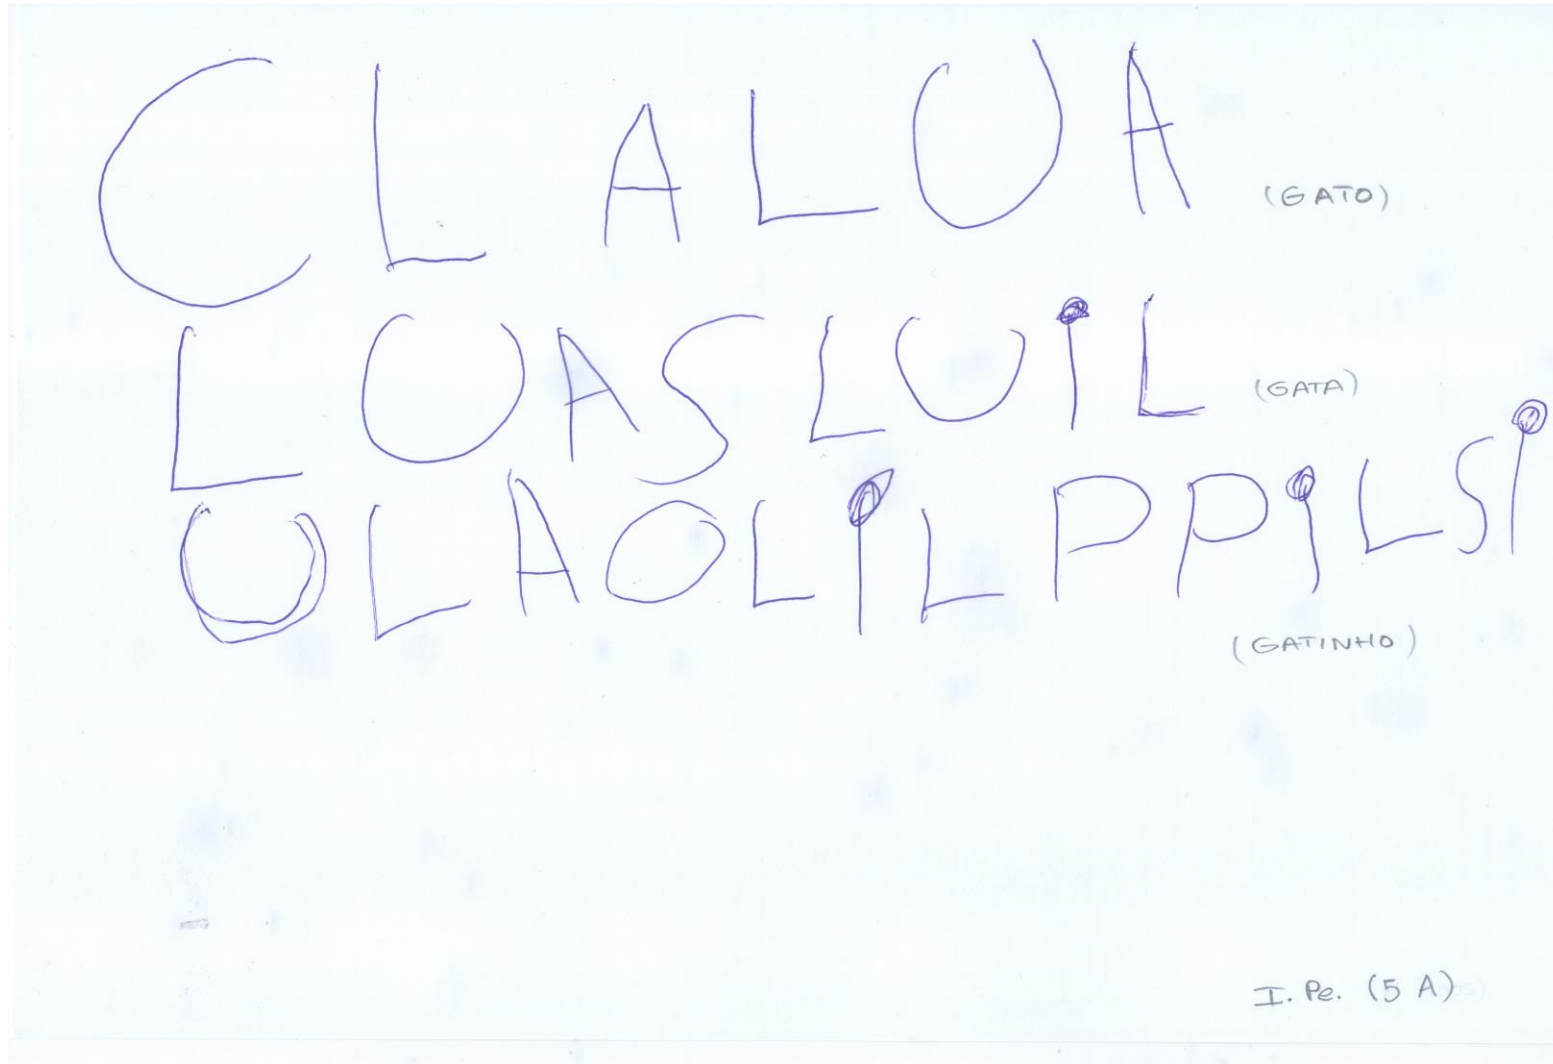 C L A L U A (GATO)
L U A S L U i L (GATA)
U L A O L i L P P i L S i
(GATINHO)
I. Pe. (5 A)